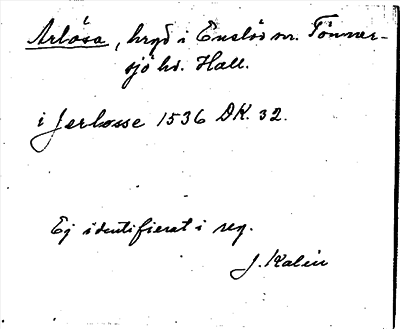 Arlösa, bygd i Enslöv sn. Tönner-
sjö hd. Hall.
i Jerlosse 1536 DK. 32.
Ej identifierat i reg.
J. Kalén